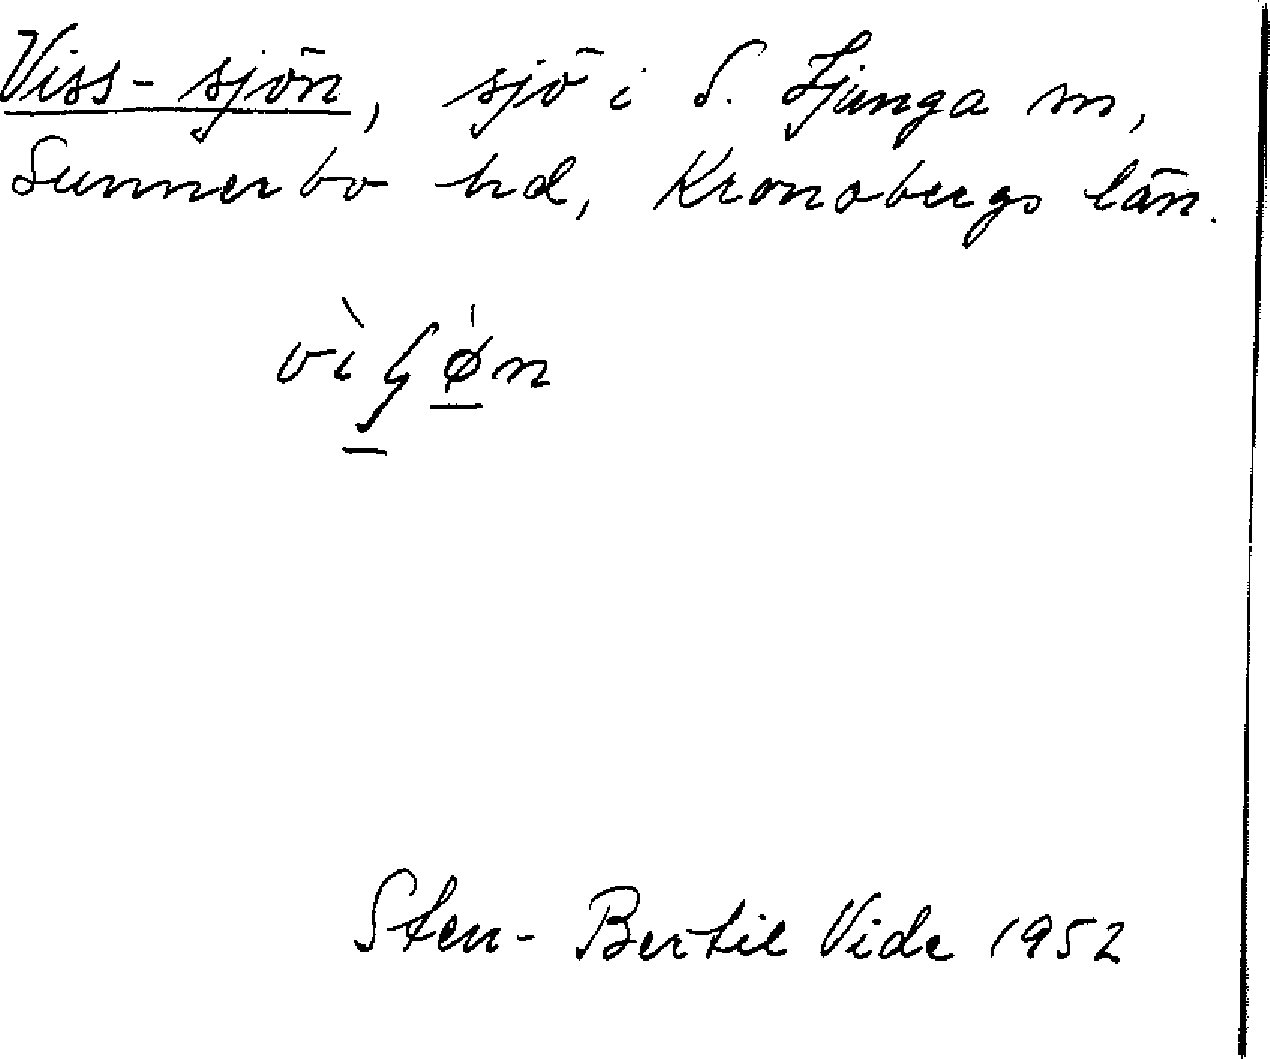 Viss-sjön, sjö i S. Ljunga sn,
Sunnerbo hd, Kronobergs län.
Sten-Bertil Vide 1952